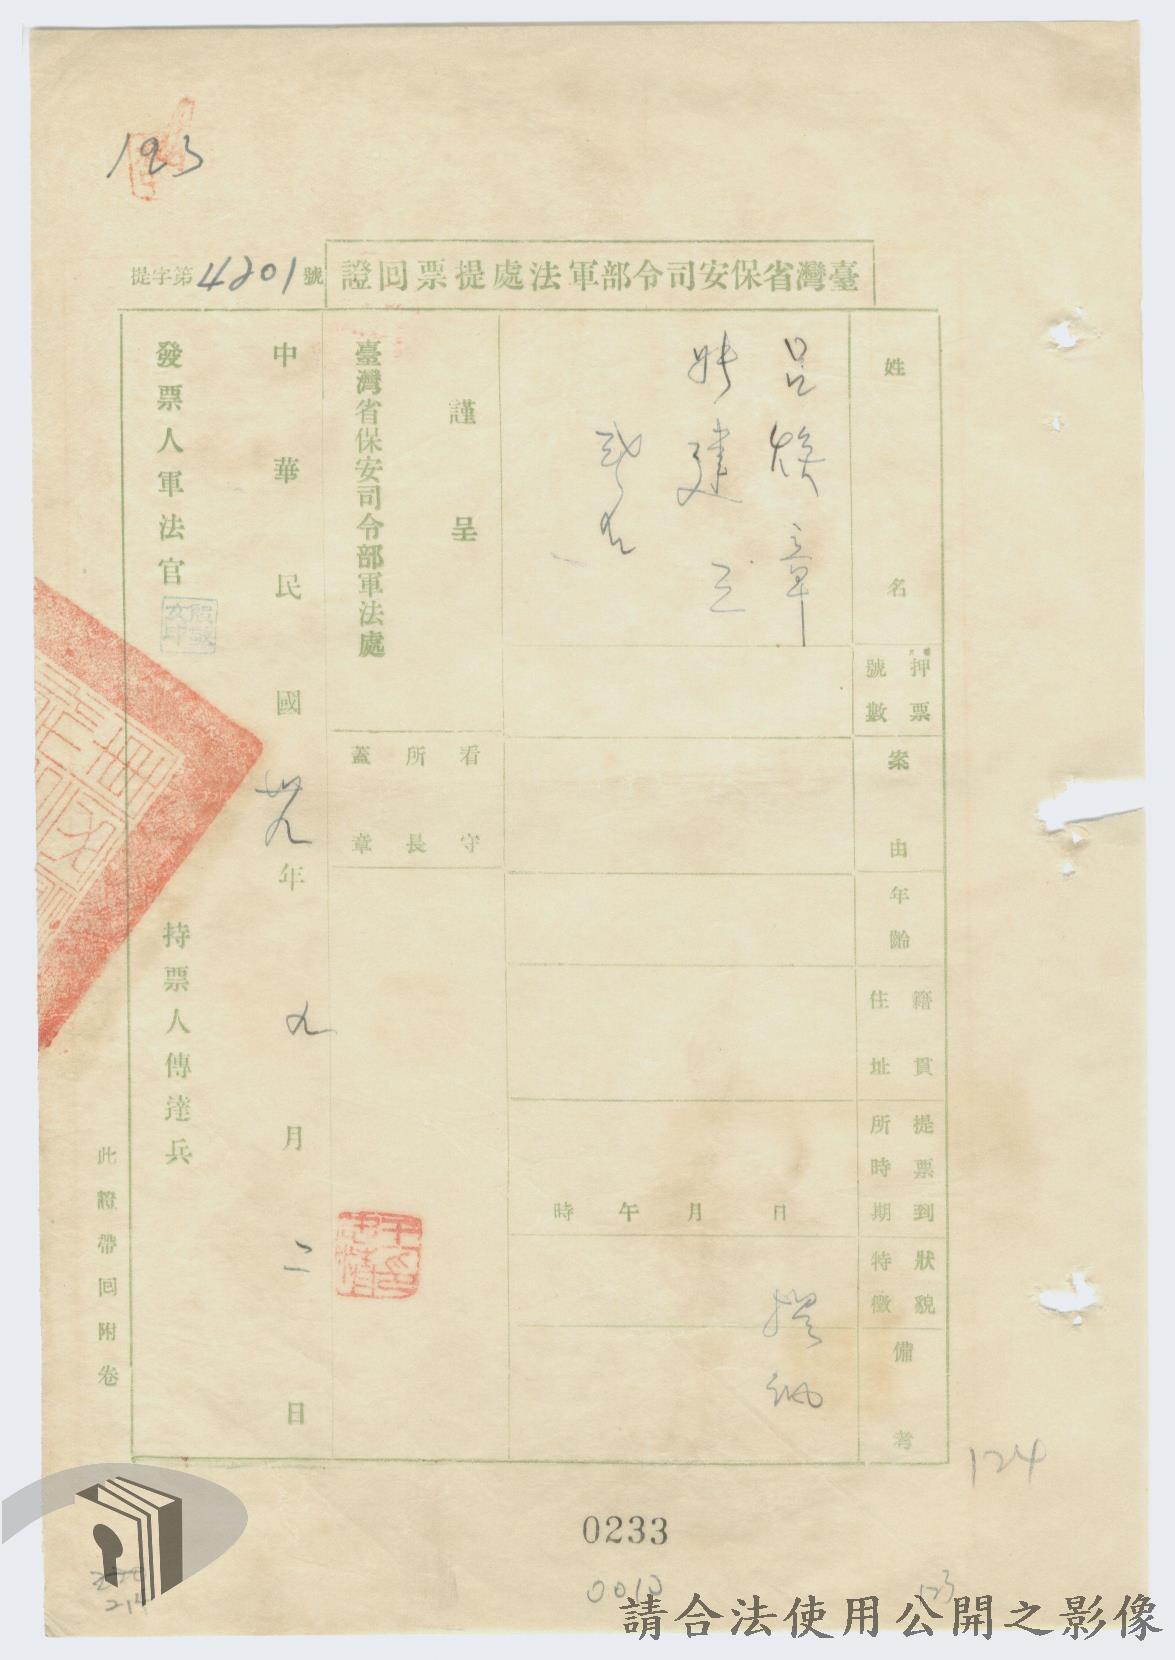 123
臺灣省保安司令部軍法處提票回證
提字第4201號
姓名
呂煥章
姚建三
押票號數
案由
年齡
籍貫住址
提票到所時期
日 月 午 時
狀貌特徵
備考
謹呈
臺灣省保安司令部軍法處
看守所長蓋章
中華民國卅九年九月二日
發票人軍法官
持票人傳達兵
此證帶回附卷
124
0233
0010
123
214
請合法使用公開之影像